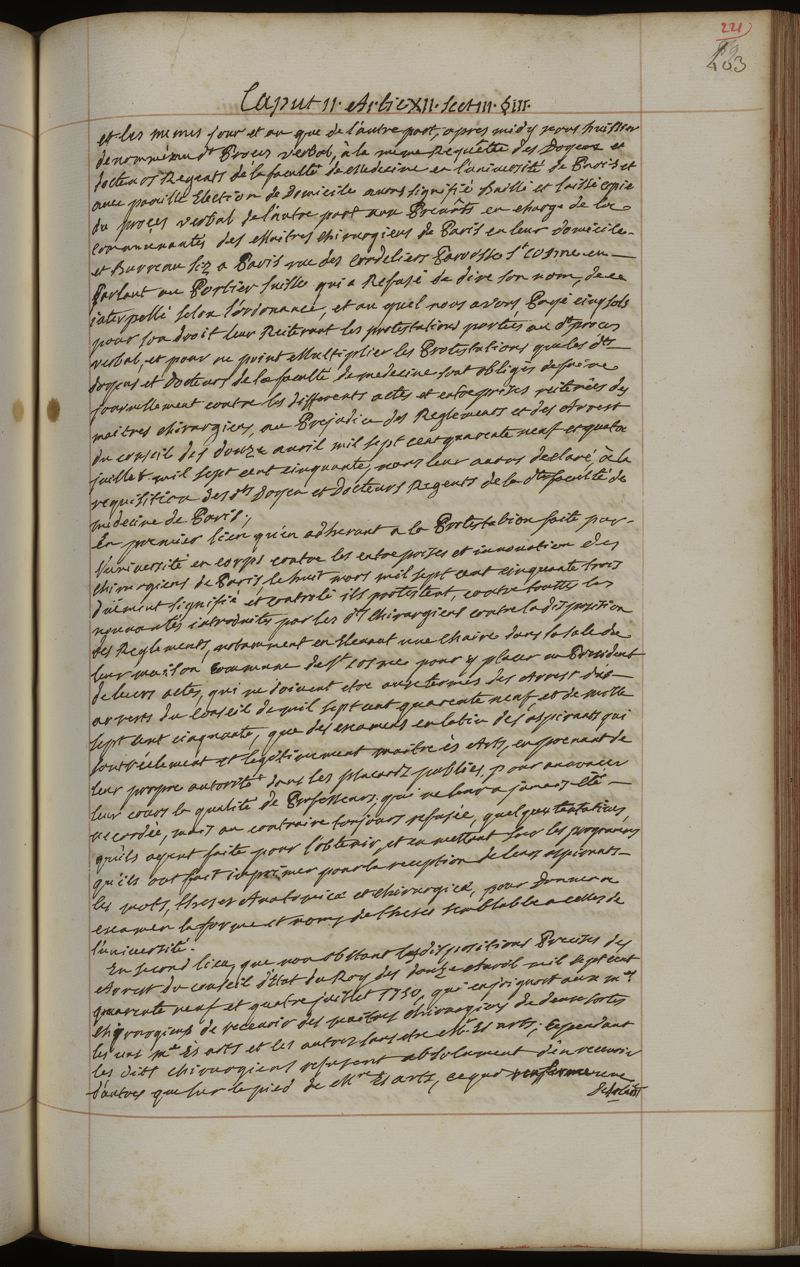 221
203
Caput II. Artic XII. Sect III. § III.
et les memes jour et an que de l'autre part, apres midy nous huissier
denommé au dt Proces verbal, à la meme Requette des Doyens et
docteurs Regents de la faculté de Medecine en l'université de Paris et
avec pareille Election de Domicile avons signifié Baillé et laissé copie
du proces verbal de l'autre part aux Prevôts en charge de la
communautés des Maitres chirurgiens de Paris en leur domicile
et Bureau siz a Paris rue des Cordeliers Paroisse St Cosme en
Parlant au Portier suisse qui a Refusé de dire son nom, de ce
interpellé selon l'ordonnance, et au quel nous avons Payé cinq sols
pour son droit leur Reiterant les protestations portées au dt proces
verbal, et pour ne point Multiplier les Protestations que les dts
doyens et Docteurs de la faculté de medecine sont obligés de faire
journellement contre les differents actes et entreprises reiterées des
maitres chirurgiens, au Prejudice des Reglements et des Arrest
du conseil des douze avril mil sept cent quarente neuf et quatre
juillet mil sept cent cinquante, nous leur avons declaré, à la
requisition des dts Doyen et Docteurs Regents de la dte faculté de
medecine de Paris;
En premier lieu qu'en adherant a la Protestation faite par
l'université en corps contre les entreprises et innovation des
chirurgiens de Paris, le huit mars mil sept cent cinquante trois
düement signifié et controlé ils protestent, contre touttes les
nouvautés introduites par les dts chirurgiens contre la disposition
des Reglements, notamment en Elevant une Chaire dans la sale de
leur maison commune de St cosme pour y placer un President
de leurs actes, qui ne doivent etre aux termes des Arrest des
arrests du Conseil de mil sept cent quarente neuf, et de mille
sept cent cinquante, que des examens en latin des aspirants qui
sont réelement et legitimement maitre ès Arts, en prenant de
leur propre autorité dans les placards publiés, pour annoncer
leur cours la qualité de Professeurs, qui ne leur a jamais été
accordée, mais au contraire toujours refusée, quelques tentatives,
qu'ils ayent faite pour l'obtenir, et en mettant sur les programes
qu'ils ont fait imprimer pour la reception de leurs aspirants
les mots, theses Anatomica et chirurgica, pour donner a
examen la forme et nom de theses semblable a celles de
l'université.
En second lieu, que non obstant les dispositions Precises des
Arrest du conseil d'Etat du Roy des douze Avril mil sept cent
quarente neuf et quatre juillet 1750, qui enjoignent aux mes
chirurgiens de recevoir des maitres chirurgiens de deux sortes
les uns me Es arts et les autres sans etre Me Es arts; Cependant
les dits chirurgiens refusent absolument d'en recevoir
d'autres que sur le pied de Mre Es arts, ce que renferme une